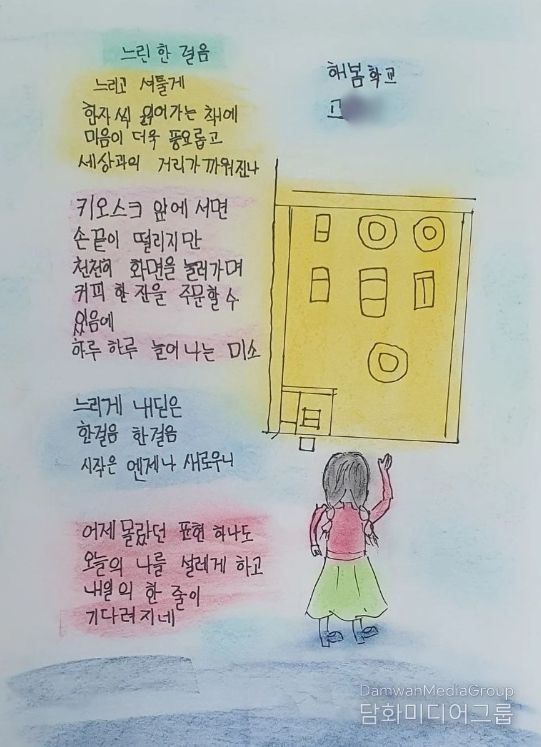 느린 한 걸음
해봄학교
고
느리고 서툴게
한자씩 읽어가는 책에
마음이 더욱 풍요롭고
세상과의 거리가 까워진나
키오스크 앞에 서면
손끝이 떨리지만
천천히 화면을 눌러가며
커피 한 잔을 주문할 수
있음에
하루 하루 늘어나는 미소
느리게 내딛은
한걸음 한걸음
시작은 엔제나 새로우니
어제 몰랐던 표현 하나도
오늘의 나를 설레게 하고
내일의 한 줄이
기다려지네
DamwhanMediaGroup
담화미디어그룹